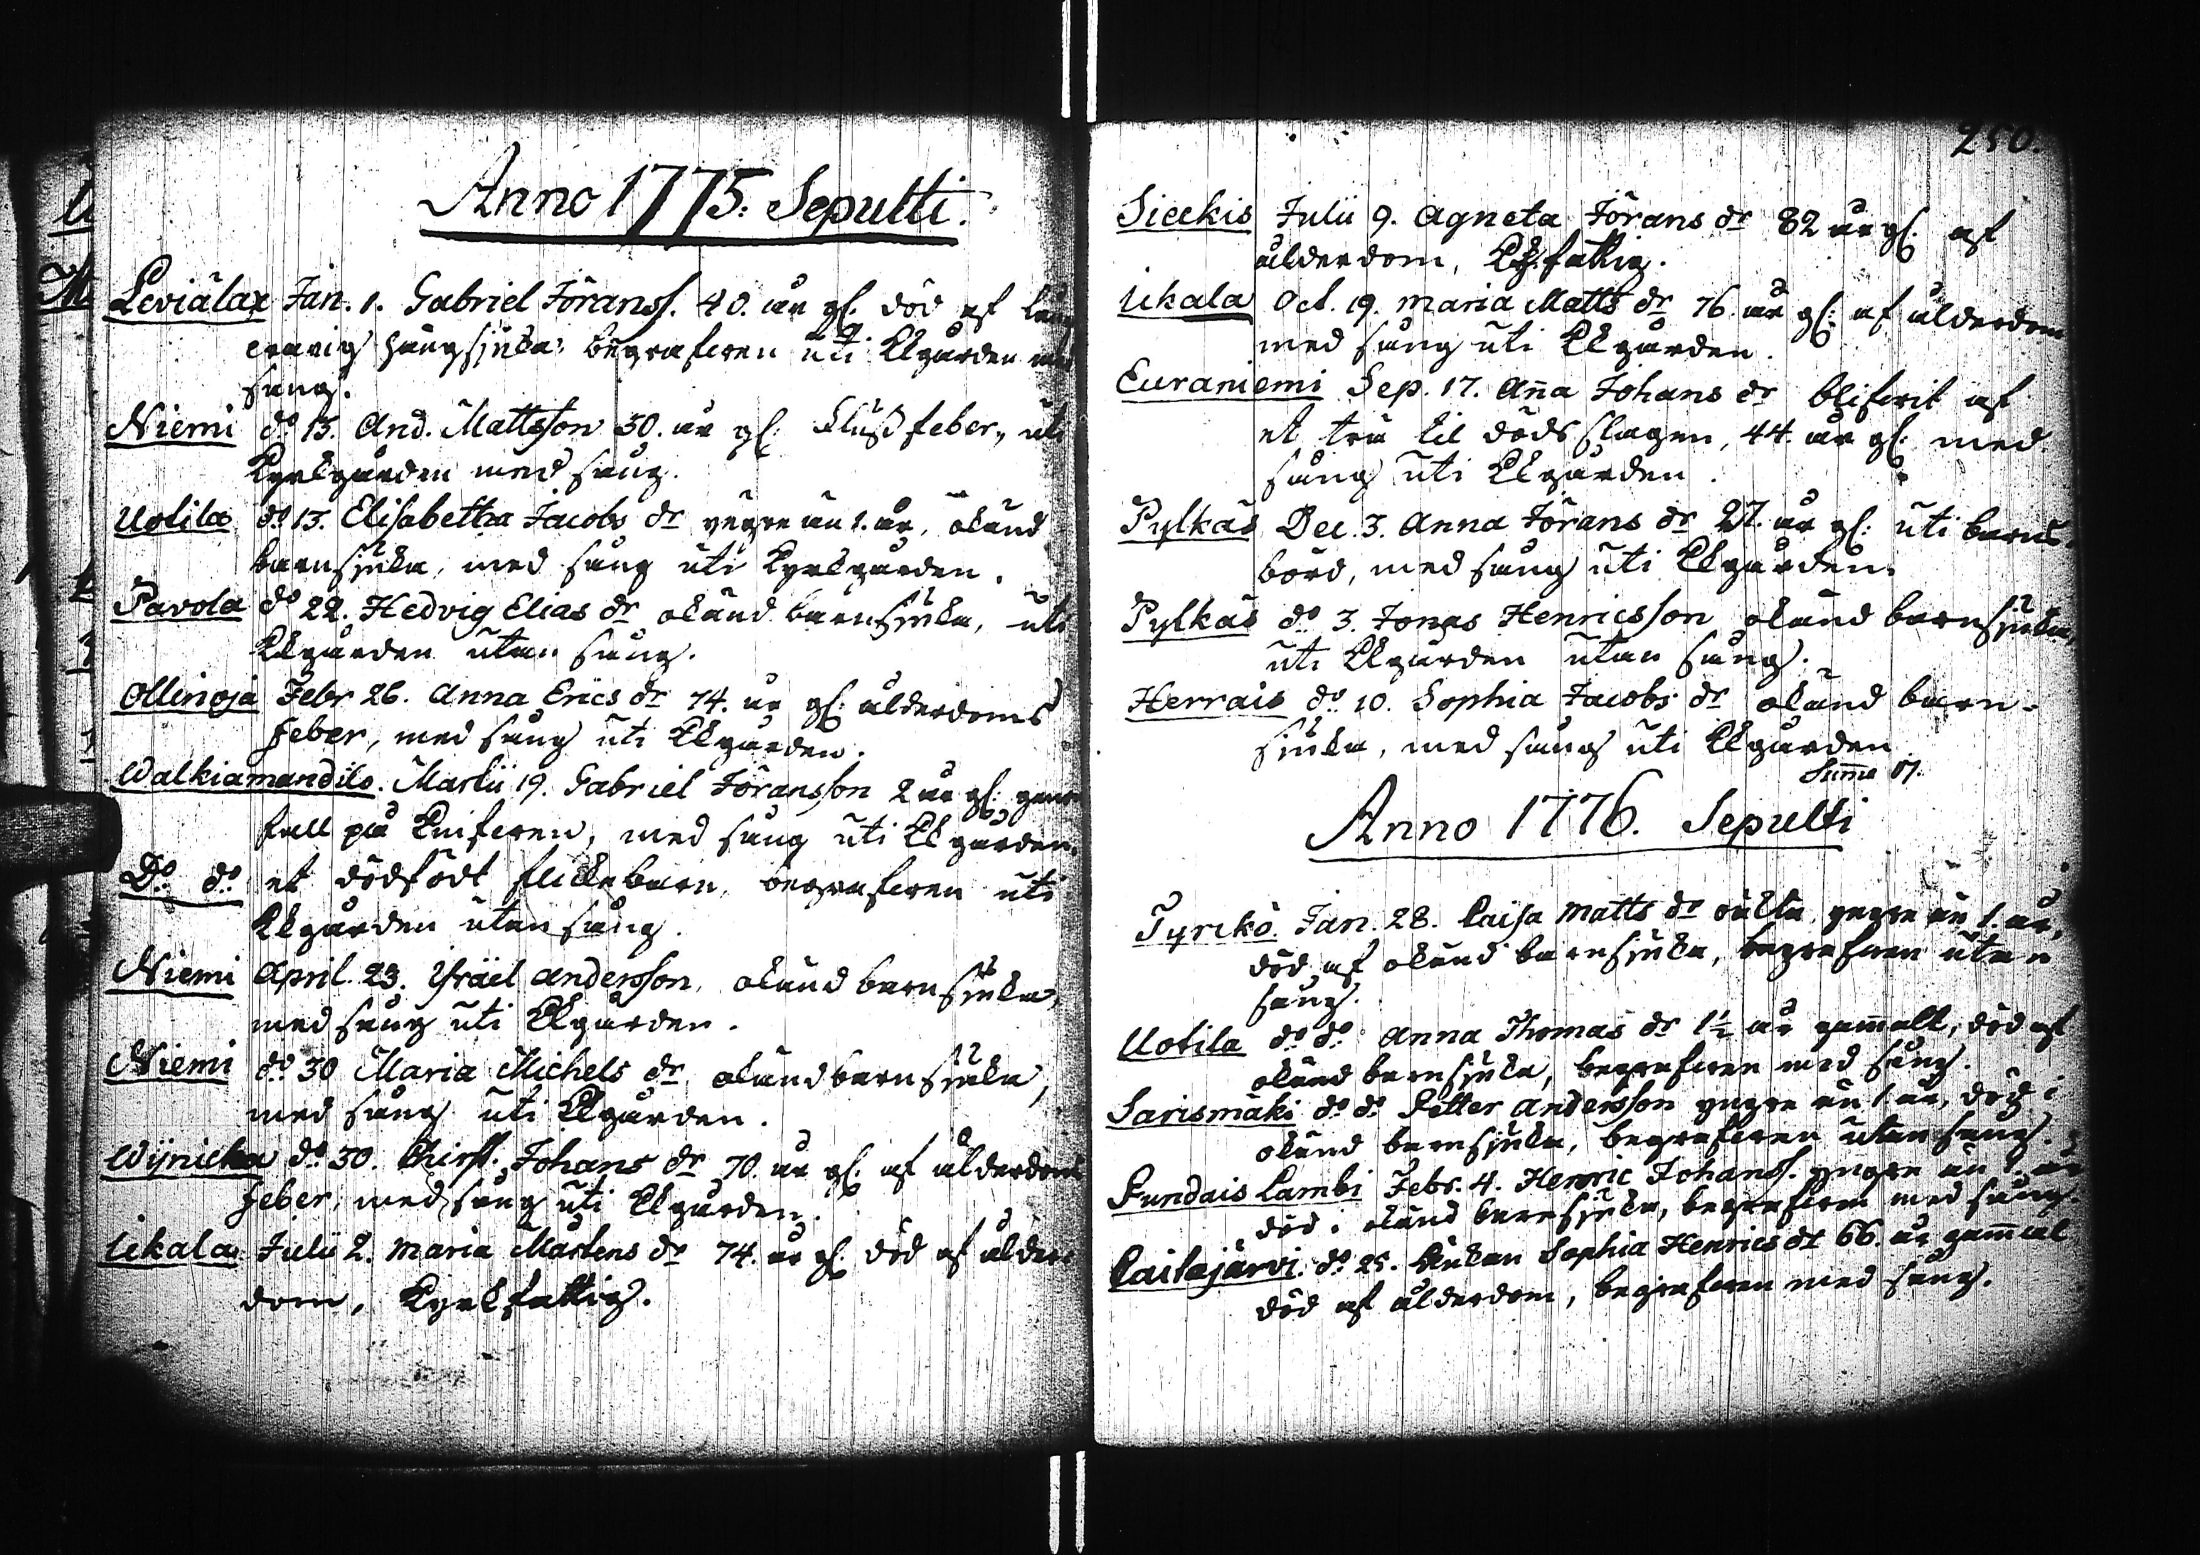 Anno 1775. Sepulti.
Leviälax Jan. 1. Gabriel Föranss. 40. år gl. död af lång
varig håugsjuka: begrafwen uti Kkgården med
sång.
Niemi do 15. And. Mattsson 50. år gl: Flussfeber, uti
Kyrkgården med sång.
Uotila do 13. Elisabetha Jacobs dr yngre än 1. år, okänd
barnsjuka, med sång uti Kyrkgården.
Pavola do 22. Hedvig Elias dr okänd barnsjuka, uti
Kkgården utan sång.
Ollinoja Febr 26. Anna Erics dr 74. år gl: ålderdoms
feber, med sång uti Kkgården.
Walkiamandils. Martii 19. Gabriel Föransson 2 år gl: genom
fall på knifwen, med sång uti Kkgården.
Do. do. et dödfödt flickebarn, begrafwen uti
Kkgården utan sång.
Niemi April. 23. Ysräel Andersson, okänd barnsjuka,
med sång uti Kkgården.
Niemi do 30 Maria Michels dr okänd barnsjuka,
med sång uti Kkgården.
Wijnicka do 30. Christ. Johans dr 70. år gl. af ålderdoms
feber, med sång uti Kkgården.
Ukala Julii 2. Maria Martens dr 74. år gl. död af ålder
dom, Kyrkfattig.
250.
Sieekis Julii 9. AgnetaFörans dr 82 år gl: af
ålderdom, Kkfattig.
Ukala Oct. 19. Maria Matts dr 76. år gl: af ålderdom
med sång uti Kkgården.
Euraniemi Sep. 17. Aña Johans dr blifwit af
et trä til döds slagen, 44. år gl: med
sång uti Kkgården.
Pylkäs Dec. 3. Anna Förans dr 27. år gl: uti barns-
börd, med sång uti Kkgården.
Pylkäs do 3. Jonas Henricsson okänd barnsjuka,
uti Kkgården utan sång.
Herrais do. 10. Sophia Jacobs dr okänd barn-
sjuka, med sång uti Kkgården.
Sum̃a 17.
Anno 1776. Sepulti
Tyrckö. Jan. 28. Caisa Matts dr oäkta yngre än 1. år,
död af okänd barnsjuka, begrafwen utan
sång.
Uotila do. do. Anna Thomas dr 1½ år gam̃alt, död af
okänd barnsjuka, begrafwen med sång.
Sarismäki do do. Petter Andersson yngre än 1 år, död i
okänd barnsjuka, begrafwen utan sång.
Pundais Lambi Febr. 4. Henric Johanss. yngre än 1. år
död i okänd barnsjuka, begrafwen med sång.
Caitajärvi. do. 25. Enkan Sophia Henrics dr 66. år gam̃al
död af ålderdom, begrafwen med sång.